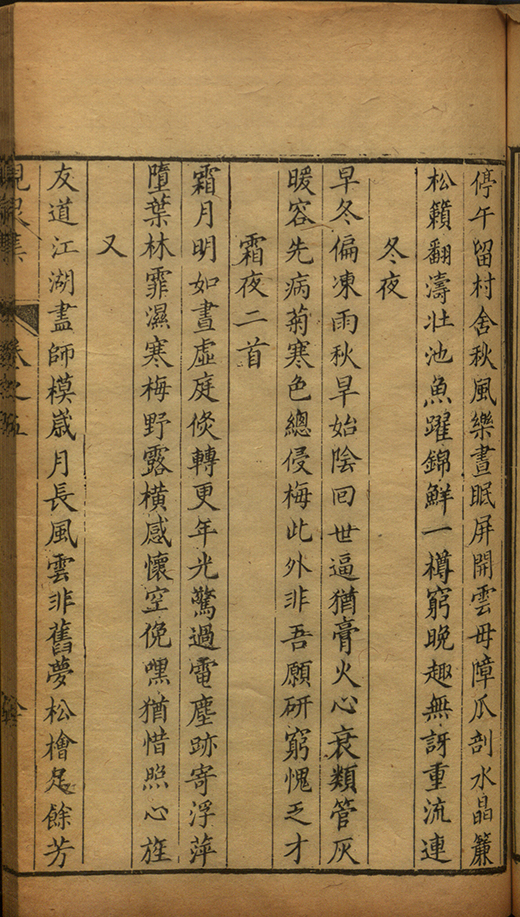 停午留村舍秋風樂晝眠屏開雲母障瓜剖水晶簾
松籟翻濤壯池魚躍錦鮮一樽窮晚趣無訝重流連
冬夜
早冬偏凍雨秋旱始陰回世逼猶膏火心衰類管灰
暖容先病菊寒色總侵梅此外非吾願研窮愧乏才
霜夜二首
霜月明如晝虛庭倏轉更年光驚過電塵跡寄浮萍
墮葉林霏濕寒梅野露橫感懷空俛嘿猶惜照心旌
又
友道江湖盡師模歲月長風雲非舊夢松檜足餘芳